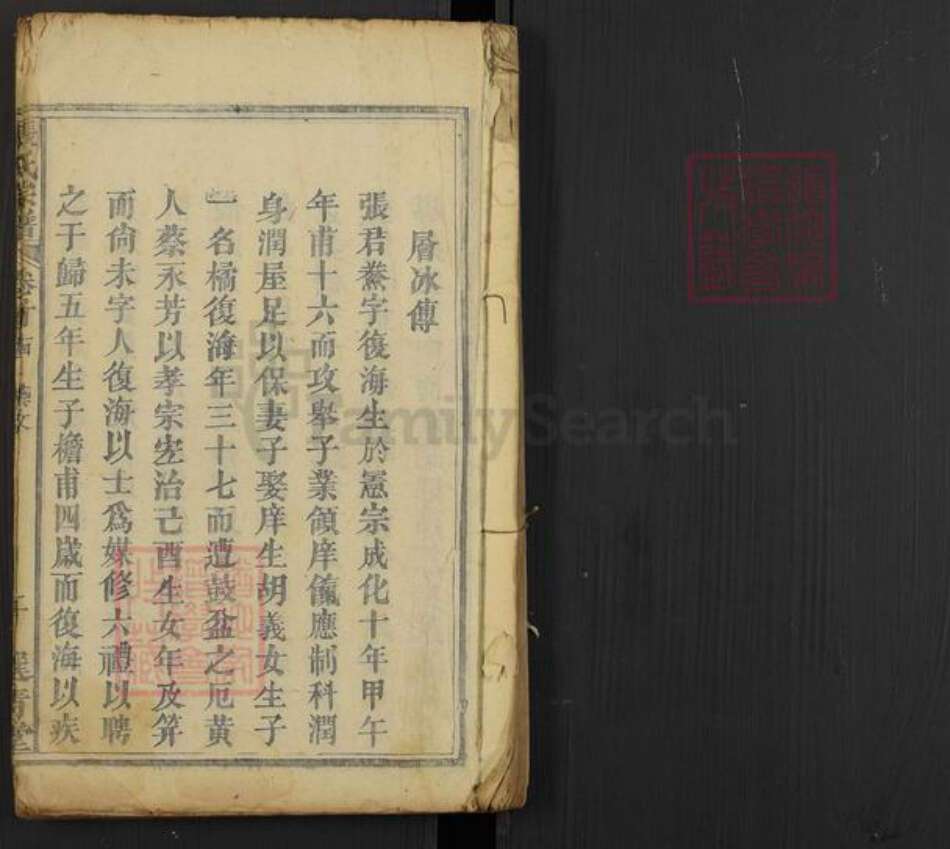 層冰傳
張君鰲字復海生於憲宗成化十年甲午
年甫十六而攻舉子業領庠餼應制科潤
身潤屋足以保妻子娶庠生胡義女生子
一名橘復海年三十七而遭鼓盆之厄黃
人蔡永芳以孝宗宏治己酉生女年及笄
而尙未字人復海以士爲媒修六禮以聘
之于歸五年生子檐甫四歲而復海以疾
張氏宗譜 卷首
FamilySearch